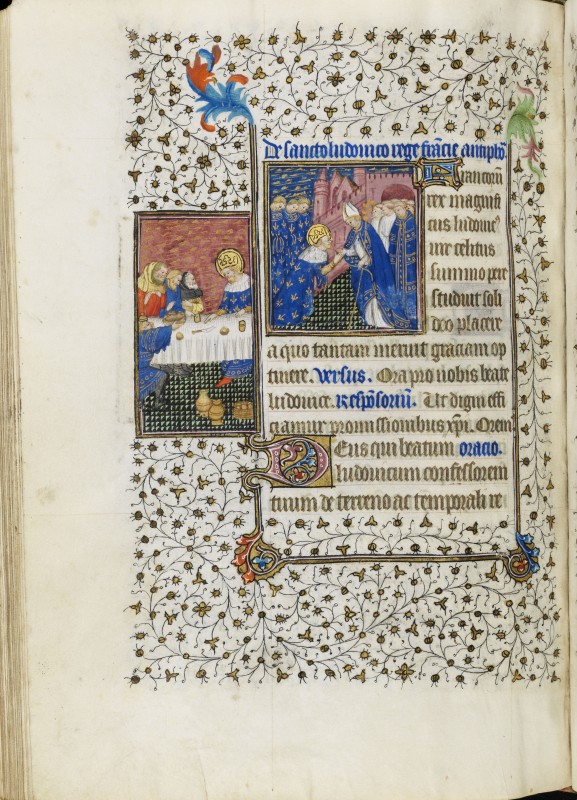 De sancto ludovico rege francie antiph̄o
Francorū
rex magnifi
cus ludovic⁹
iure celitus
summo pere
studuit soli
deo placere
a quo tantam meruit graciam op
tinere. Versus. Ora pro nobis beate
ludovice. Respōsoriū. Ut digni effi
ciamur promissionibus xp̄i. Orem⁹
Deus qui beatum oracio.
ludovicum confessorem
tuum de terreno ac temporali re